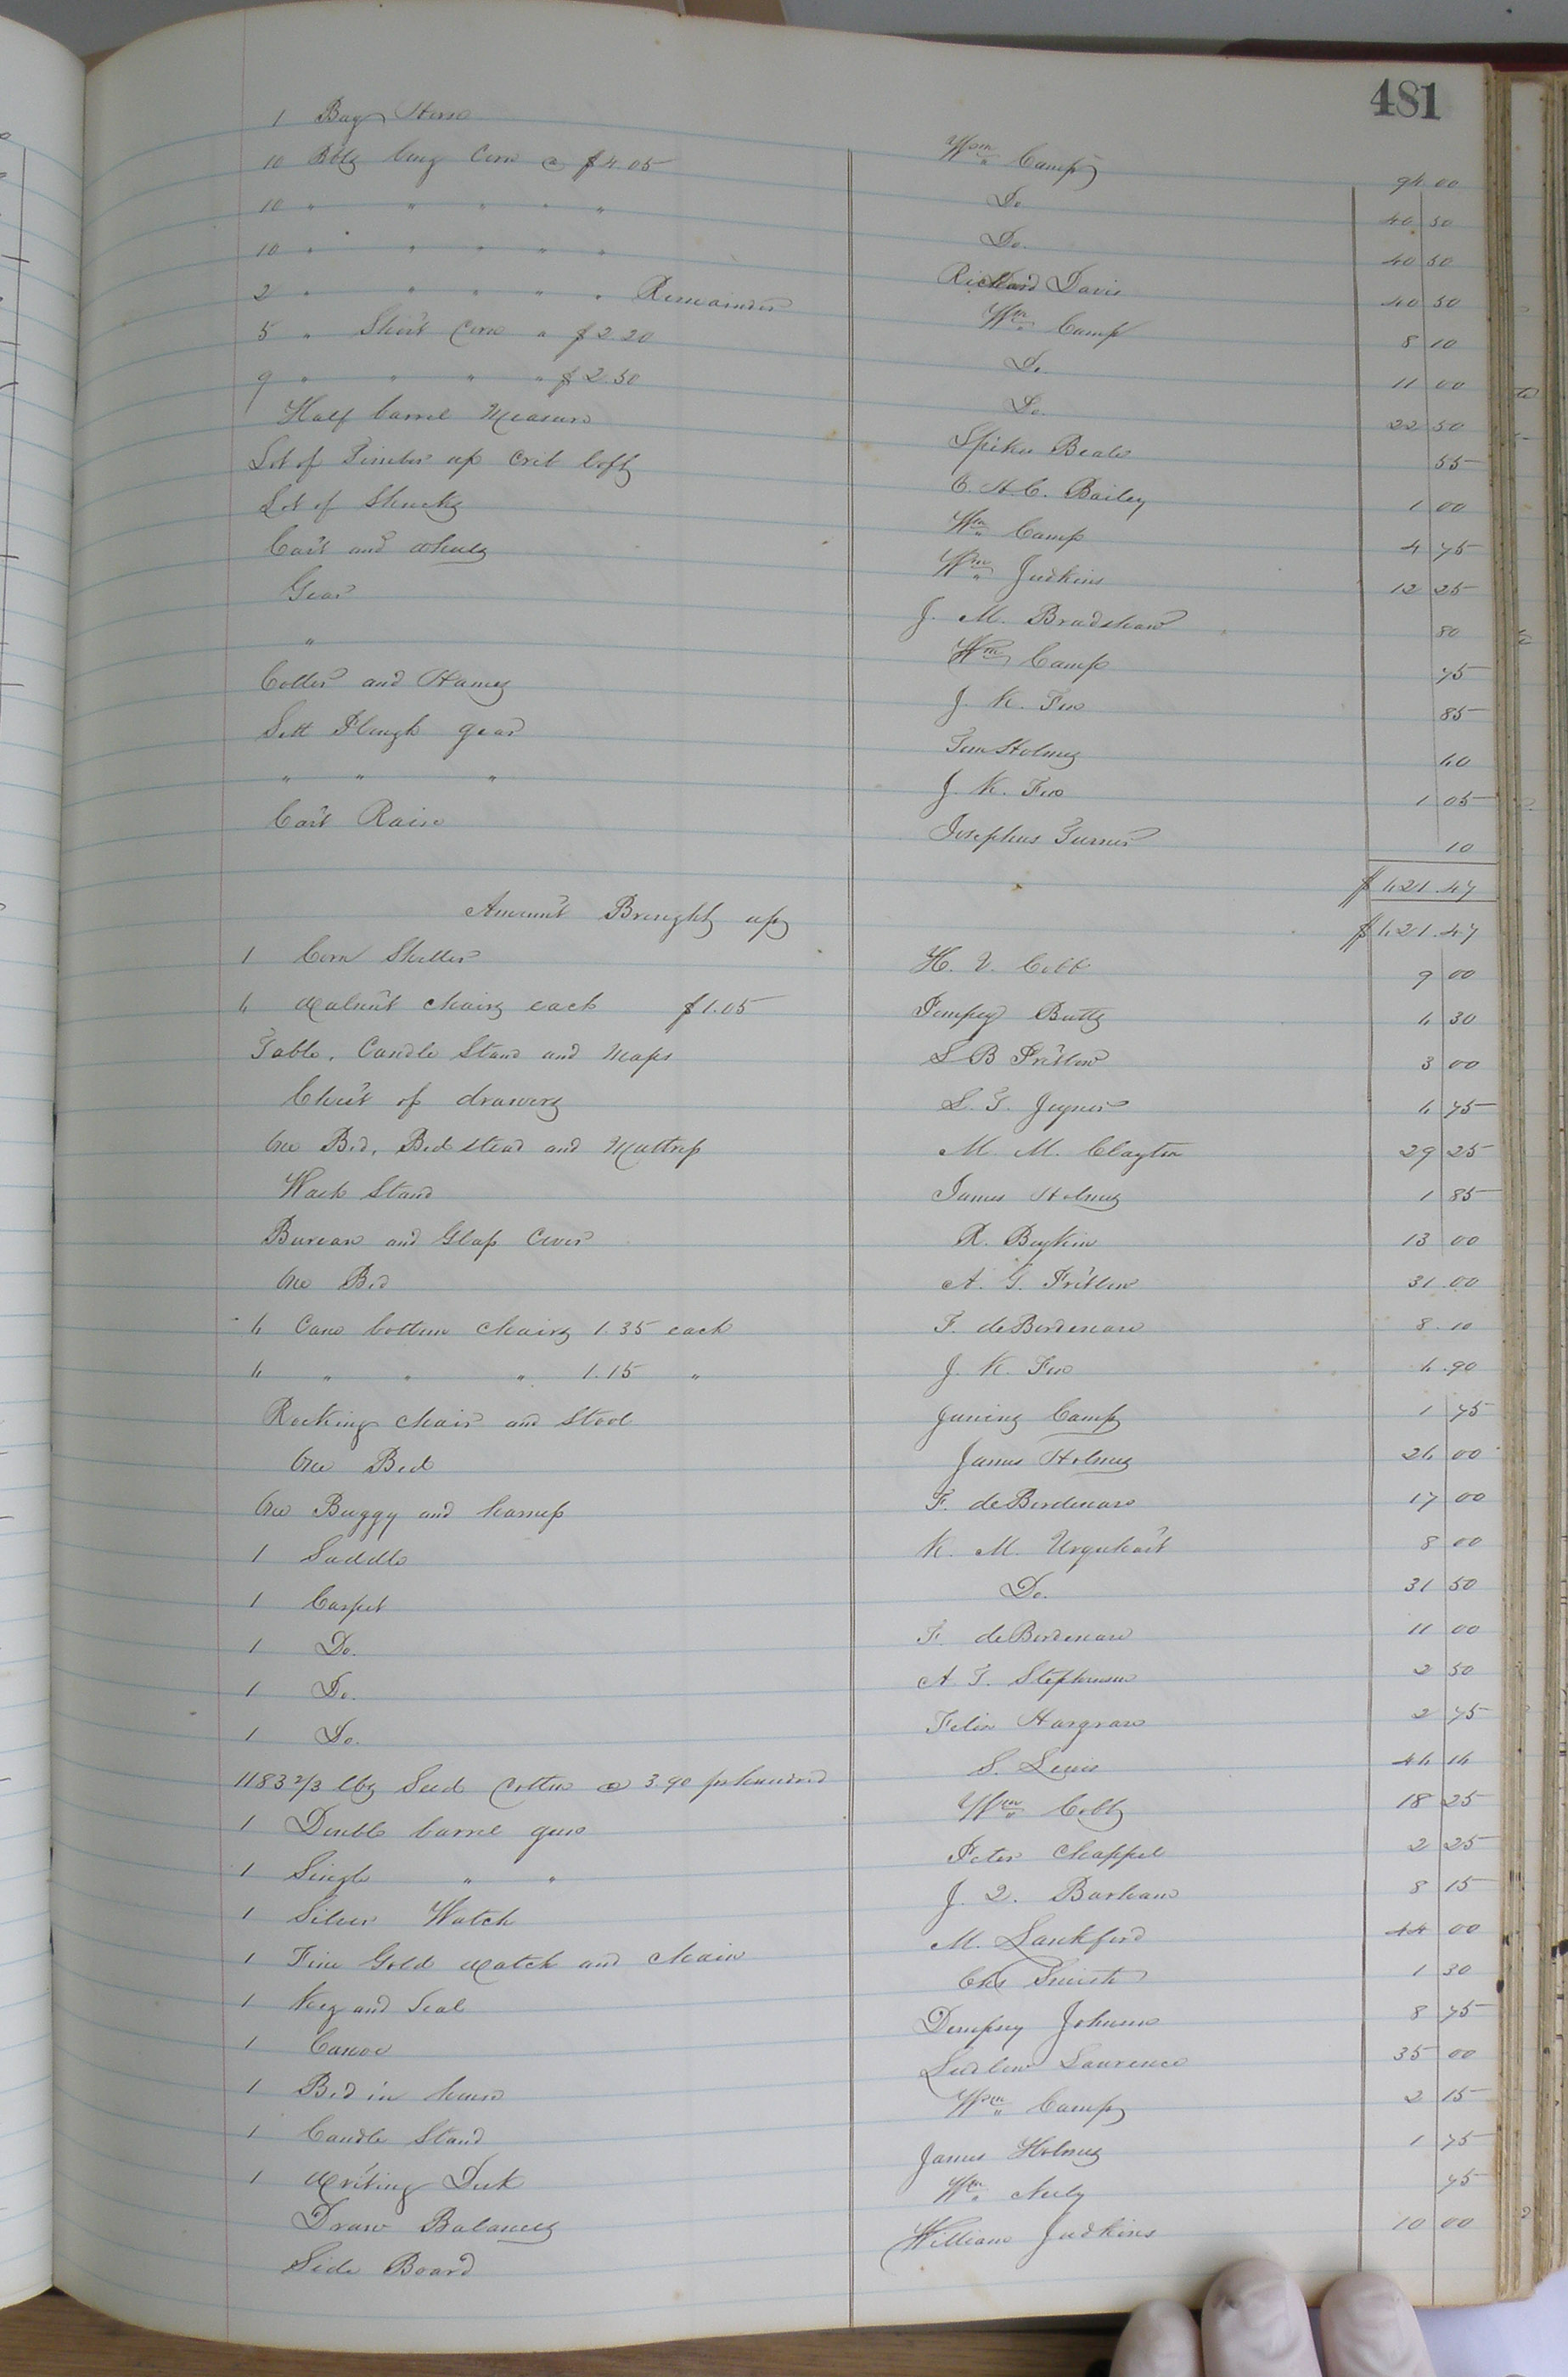 481
1 Bay Horse Wm Camp 94 00
10 Bbls long Corn @ $4.05 Do 40 50
10 " " " " " Do. 40 50
10 " " " " " Richard Davis 40 50
2 " " " " " Remainder Wm Camp 8 10
5 " Short Corn " $2.20 Do. 11 00
9 " " " " $2.50 Do. 22 50
Half barrel Measure Spiker Beale 55
Lot of Timber up crib loft E. H. C. Bailey 1 00
Lot of Shucks Wm Camp 4 75
Cart and wheels Wm Judkins 12 25
Gear J. M. Bradshaw 80
" Wm Camp 75
Coller and Hames J. K. 85
Sett Plough gear Tom Holmes 60
" " " J. K. 1 05
Cart Raise Josephus Turner 10
$621.47
Amount Brought up $621.47
1 Corn Sheller H. V. Cobb 9 00
6 Walnut chairs each $1.05 Tempey Butts 6 30
Table, Candle Stand and Maps S B Pretlow 3 00
Chest of drawers S. T. Joyner 6 75
One Bed, Bedstead and Mattress M. M. Clayton 29 25
Wash Stand James Holmes 1 85
Bureau and Glass Cover R. Boykin 13 00
One Bed A. G. Pretlow 31.00
6 Cane bottom chairs 1.35 each F. deBordenave 8.10
6 " " " 1.15 " J. K. 6.90
Rocking chair and Stool Junius Camp 1 75
One Bed James Holmes 26 00
One Buggy and harness F. deBordenave 17 00
1 Saddle K. M. Urquhart 8 00
1 Carpet Do. 31 50
1 Do. F. deBordenave 11 00
1 Do. A T. Stephenson 2 50
1 Do. Felix Hargrave 2 75
1183 2/3 lbs Seed Cotton @ 3.90 per hundred S. Lewis 46 16
1 Double barrel gun Wm Cobb 18 25
1 Single " " Peter Chappel 2 25
1 Silver Watch J. D. Barham 8 15
1 Fine Gold watch and chain M. Lankford 44 00
1 Key and Seal Chs Smith 1 30
1 Canoe Dempsey Johnson 8 75
1 Bed in house Ludlow Lawrence 35 00
1 Candle Stand Wm Camp 2 15
1 Writing Desk James Holmes 1 75
Draw Balances Wm Neely 75
Side Board William Judkins 10 00